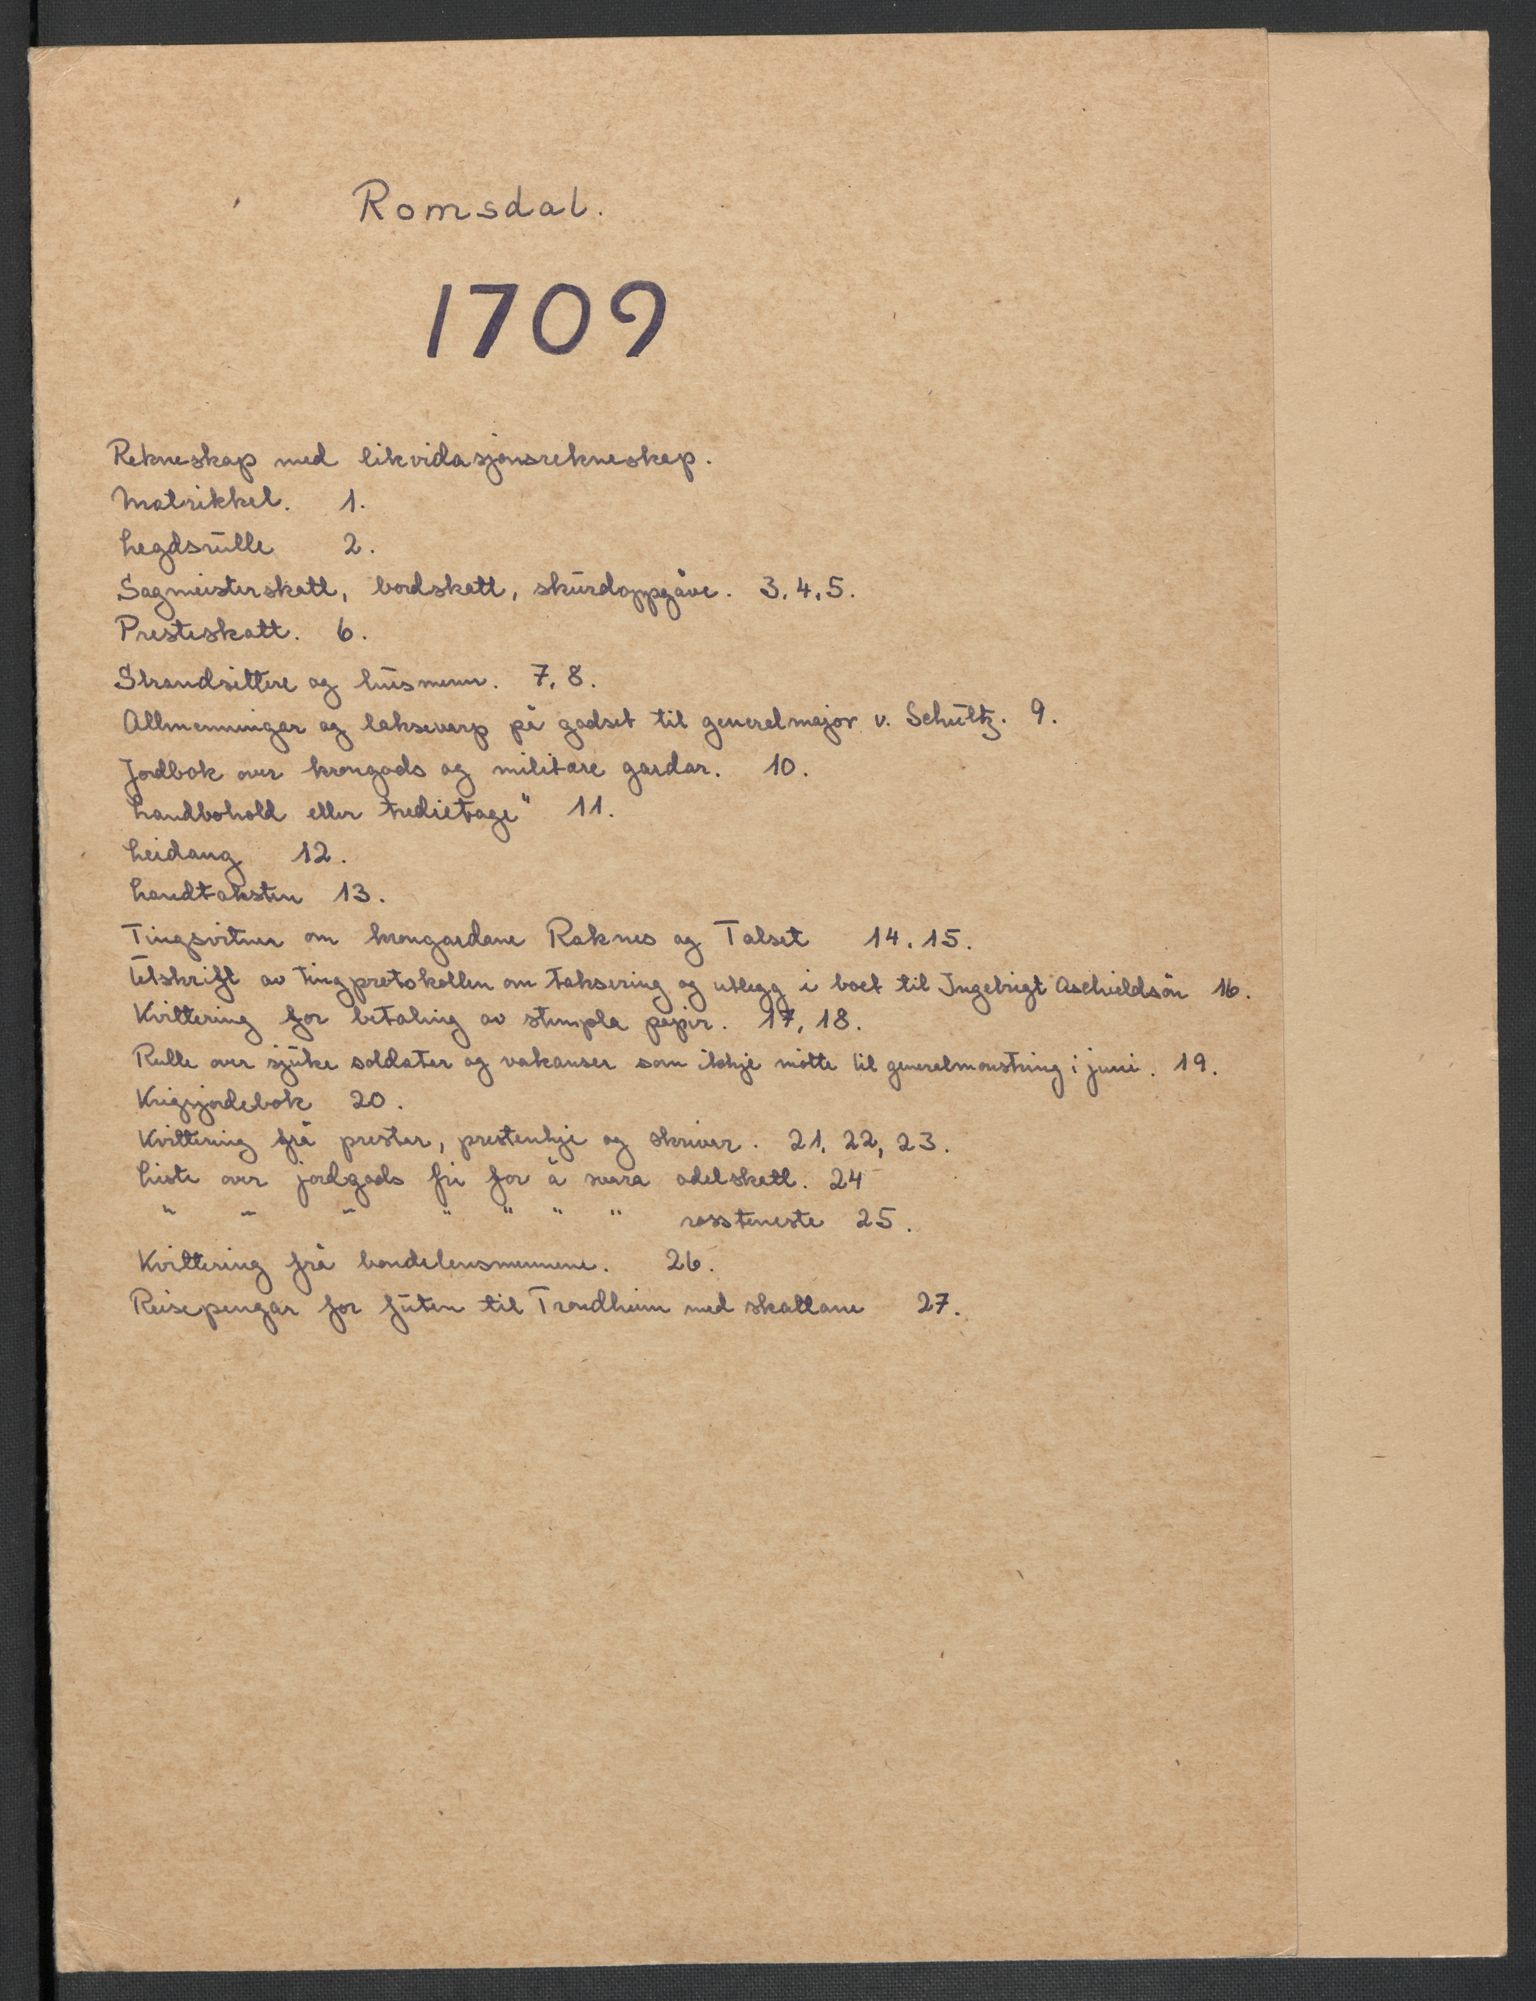 Romsdal.
1709
Rekneskap med likvidasjonsrekneskap.
Matrikkel. 1.
Legdsrulle 2.
Sagmeisterskatt, bordskatt, skurdoppgåve. 3, 4, 5.
Presteskatt. 6.
Strandsittere og husmenn. 7, 8.
Allmenningar og laksevarp på godset til generalmajor v. Schultz. 9.
Jordbok over krongods og militære gardar. 10.
Landbohold eller tredietage" 11.
Leidang 12.
Landtaksten 13.
Tingsvitner om krongardane Raknes og Talset 14. 15.
Utskrift av tingprotokollen om taksering og utlegg i boet til Ingebrigt Aschieldsön 16.
Kvittering for betaling av stempla papir. 17, 18.
Rulle over sjuke soldater og vakanser som ikkje møtte til generalmønstring i juni. 19.
Krigsjordebok 20.
Kvittering frå prestar, prestenkje og skrivar. 21, 22, 23.
Liste over jordgods fri for å svara odelskatt. 24
" " " " " " " rossteneste 25.
Kvittering frå bondelensmennene. 26.
Reisepengar for futen til Trondheim med skattane 27.